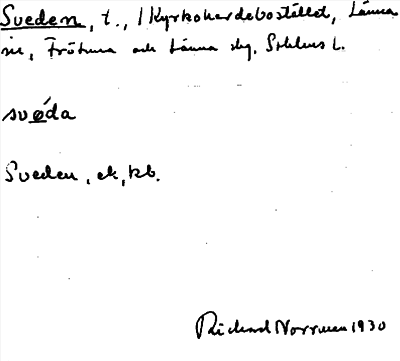 Sveden, t., /Kyrkoherdebostället, Länna
sn, Frötuna och Länna skg, Sthlms L.
svǿda
Sveden, ek, kb.
Rickard Norrman 1930